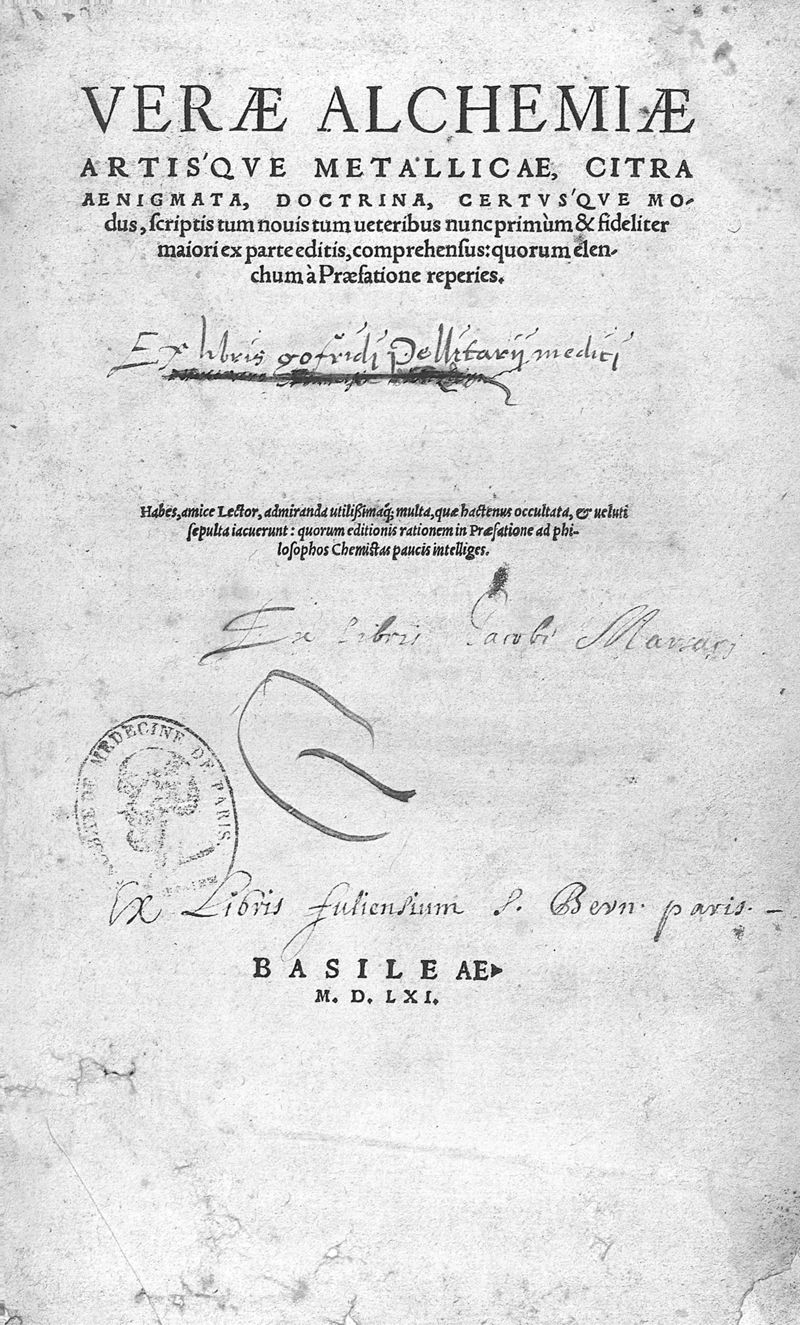 VERÆ ALCHEMIÆ
ARTIS'QVE METALLICAE, CITRA
AENIGMATA, DOCTRINA, CERTVS'QVE MO-
dus, scriptis tum nouis tum ueteribus nunc primùm & fideliter
maiori ex parte editis, comprehensus: quorum elen-
chum à Præfatione reperies.
Ex libris gofridi Pellitarij medici
Habes, amice Lector, admiranda utilißimaq; multa, quæ hactenus occultata, & ueluti
sepulta iacuerunt: quorum editionis rationem in Præfatione ad phi-
losophos Chemistas paucis intelliges.
Ex Libris Jacobi
MEDECINE DE PARIS.
Ex Libris fuliensium S. Bern. paris.
BASILEAE
M. D. LXI.